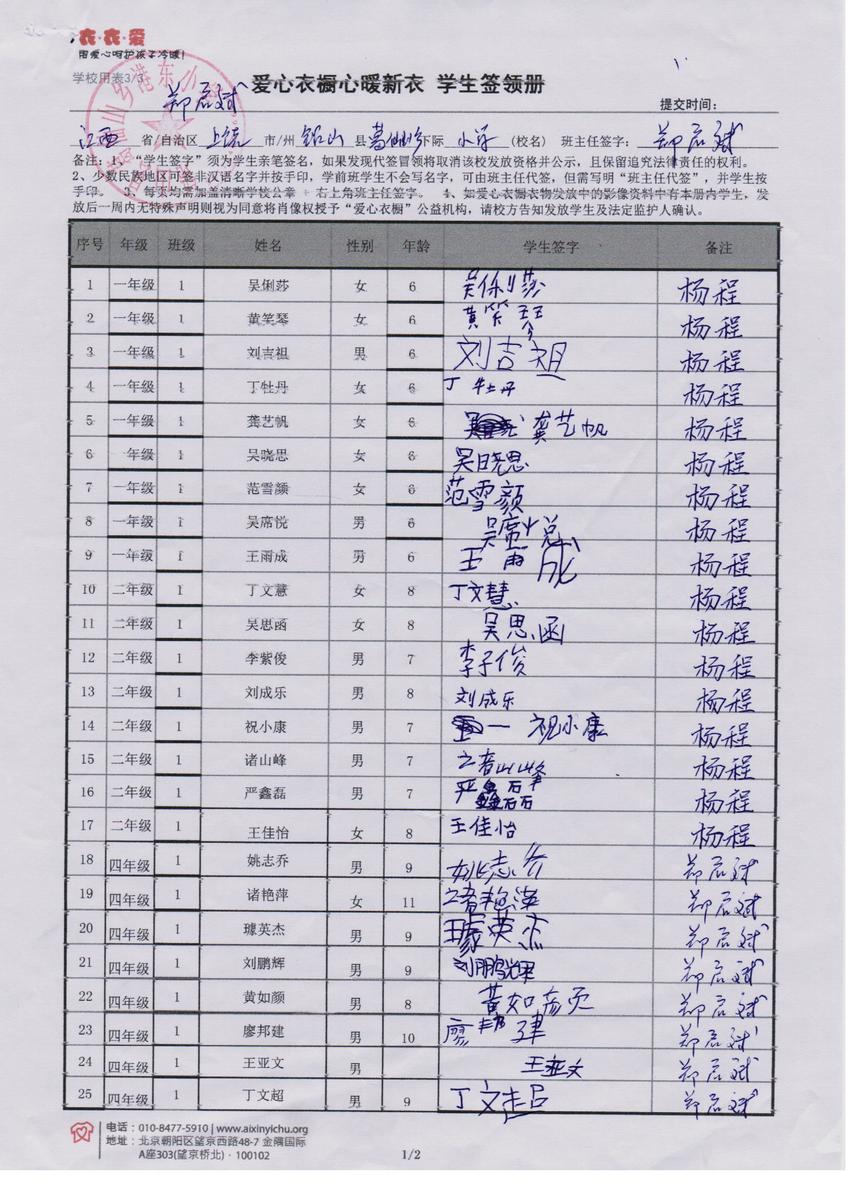 衣·衣·爱
用爱心呵护孩子冷暖!
学校用表3/3
爱心衣橱心暖新衣 学生签领册
提交时间:
江西 省/自治区 上饶 市/州 铅山 县 下际 小学 (校名) 班主任签字:
备注: 1、“学生签字”须为学生亲笔签名,如果发现代签冒领将取消该校发放资格并公示,且保留追究法律责任的权利。
2、少数民族地区可签非汉语名字并按手印,学前班学生不会写名字,可由班主任代签,但需写明“班主任代签”,并学生按
手印。 3、每页均需加盖清晰学校公章 + 右上角班主任签字。 4、如爱心衣橱衣物发放中的影像资料中有本册内学生,发
放后一周内无特殊声明则视为同意将肖像权授予“爱心衣橱”公益机构,请校方告知发放学生及法定监护人确认。
序号 年级 班级 姓名 性别 年龄 学生签字 备注
1 一年级 1 吴俐莎 女 6 吴俐莎 杨程
2 一年级 1 黄笑琴 女 6 黄笑琴 杨程
3 一年级 1 刘吉祖 男 6 刘吉祖 杨程
4 一年级 1 丁牡丹 女 6 丁牡丹 杨程
5 一年级 1 龚艺帆 女 6 龚艺帆 杨程
6 一年级 1 吴晓思 女 6 吴晓思 杨程
7 一年级 1 范雪颜 女 6 范雪颜 杨程
8 一年级 1 吴席悦 男 6 吴席悦 杨程
9 一年级 1 王雨成 男 6 王雨成 杨程
10 二年级 1 丁文慧 女 8 丁文慧 杨程
11 二年级 1 吴思函 女 8 吴思函 杨程
12 二年级 1 李紫俊 男 7 李子俊 杨程
13 二年级 1 刘成乐 男 8 刘成乐 杨程
14 二年级 1 祝小康 男 7 祝小康 杨程
15 二年级 1 诸山峰 男 7 诸山峰 杨程
16 二年级 1 严鑫磊 男 7 严鑫磊 杨程
17 二年级 1 王佳怡 女 8 王佳怡 杨程
18 四年级 1 姚志乔 男 9 姚志乔 郑启斌
19 四年级 1 诸艳萍 女 11 诸艳萍 郑启斌
20 四年级 1 璩英杰 男 9 璩英杰 郑启斌
21 四年级 1 刘鹏辉 男 9 刘鹏辉 郑启斌
22 四年级 1 黄如颜 男 8 黄如颜 郑启斌
23 四年级 1 廖邦建 男 10 廖邦建 郑启斌
24 四年级 1 王亚文 男 王亚文 郑启斌
25 四年级 1 丁文超 男 9 丁文超 郑启斌
电话:010-8477-5910 | www.aixinyichu.org
地址:北京朝阳区望京西路48-7 金隅国际
A座303(望京桥北)·100102
1/2